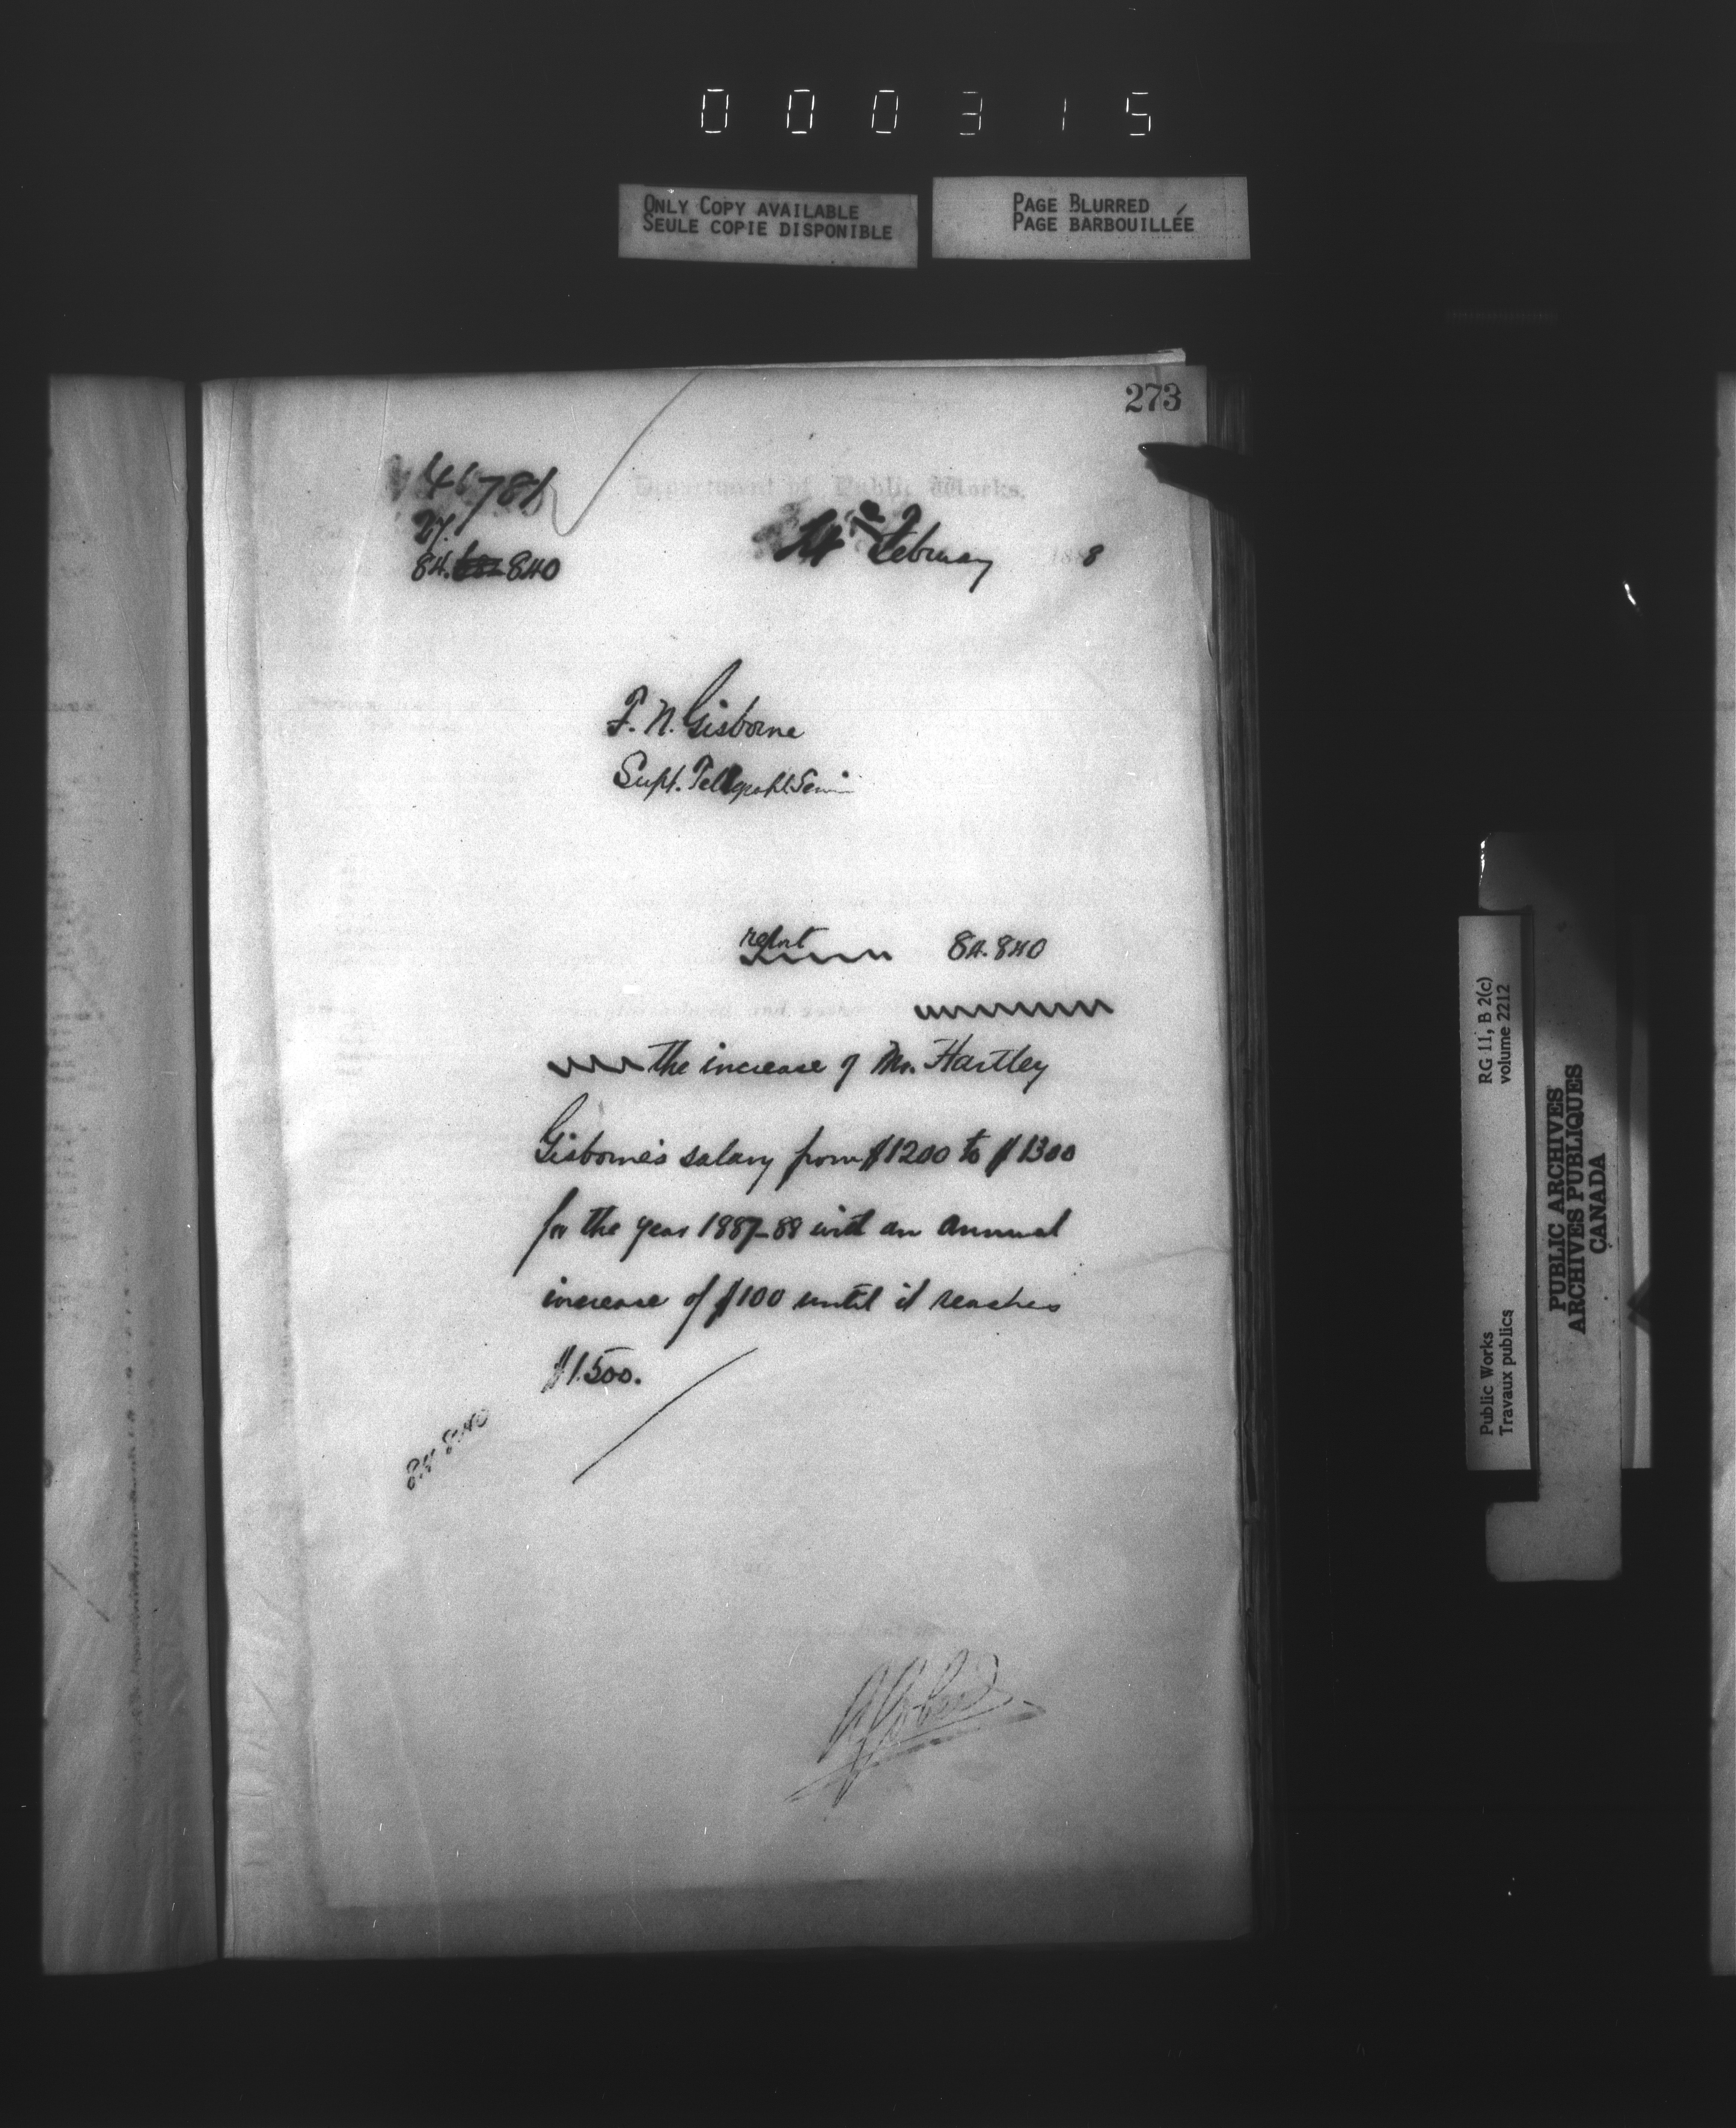 000315
ONLY COPY AVAILABLE
SEULE COPIE DISPONIBLE
PAGE BLURRED
PAGE BARBOUILLÉE
273
Department of Public Works.
46781
27.
84. 840
February 188
F. N. Gisborne
Supt. Telegraph Servi
report 84.840
the increase of Mr. Hartley
Gisborne's salary from $1200 to $1300
for the year 1887-88 with an annual
increase of $100 until it reaches
$1.500.
84.840
RG 11, B 2(c)
volume 2212
Public Works
Travaux publics
PUBLIC ARCHIVES
ARCHIVES PUBLIQUES
CANADA